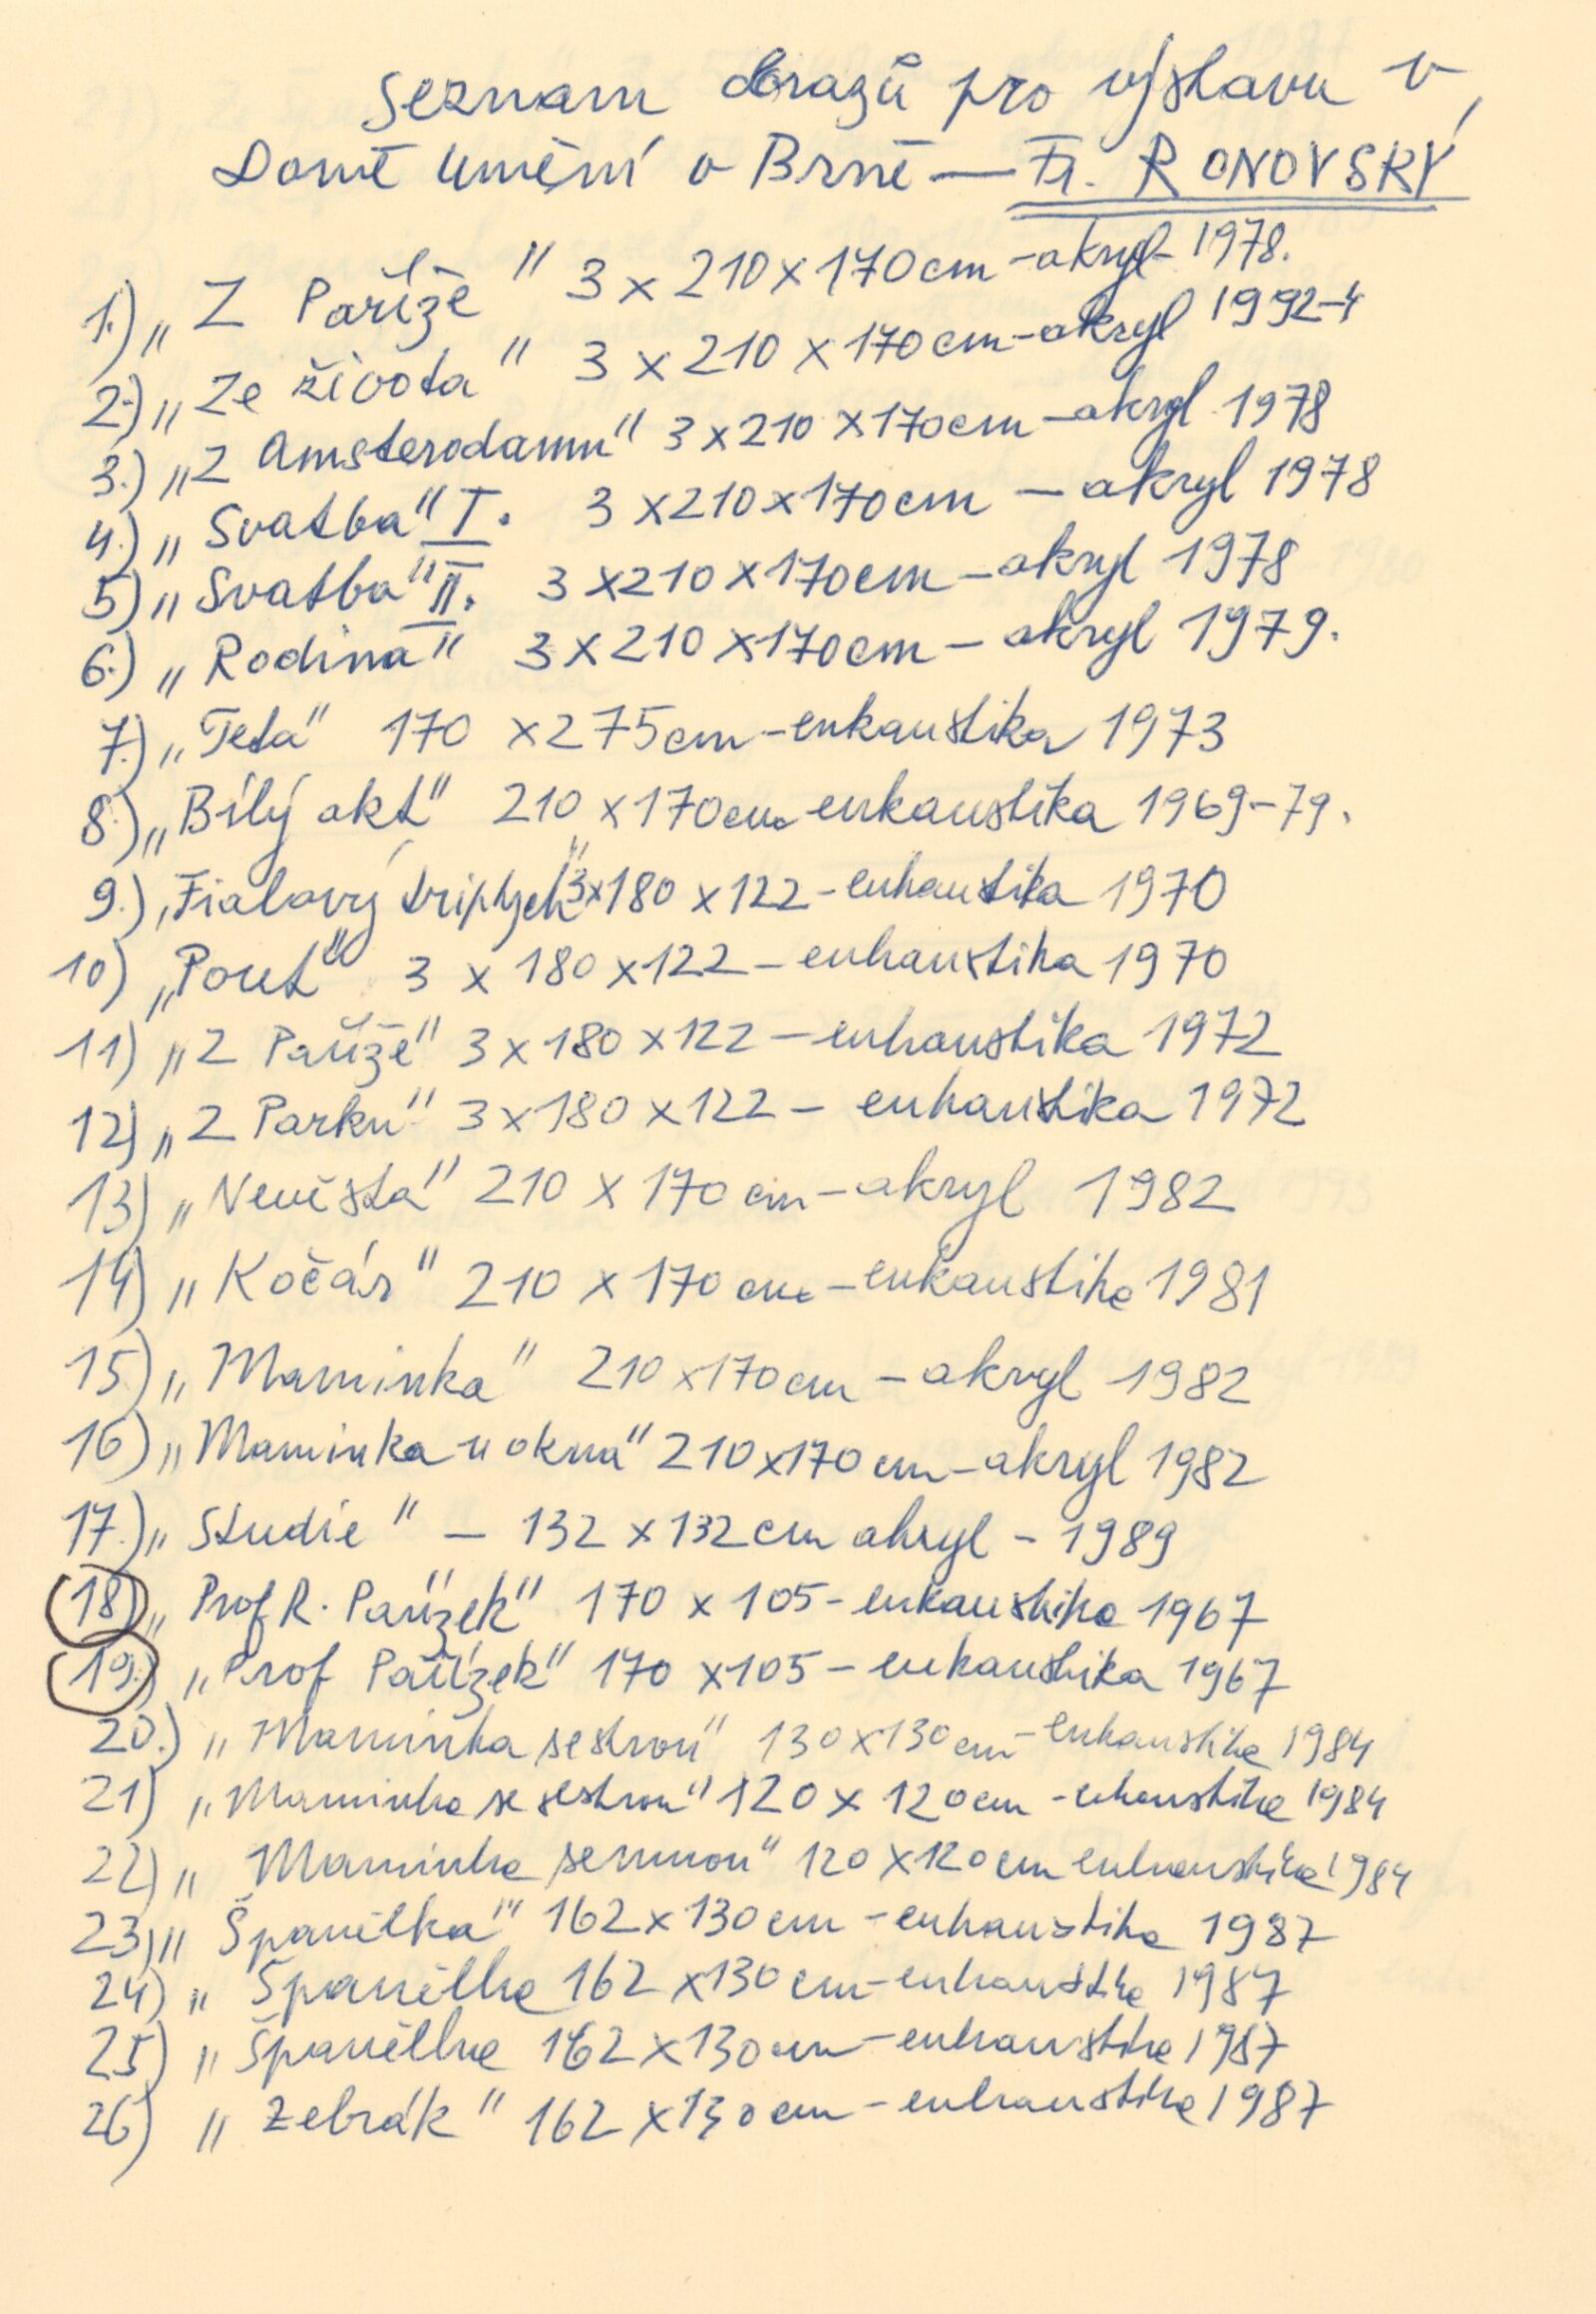 Seznam obrazů pro výstavu v
Domě umění v Brně — Fr. RONOVSKÝ
1.) „Z Paříže" 3 x 210 x 170 cm - akryl - 1978.
2.) „Ze života" 3 x 210 x 170 cm - akryl 1992-4
3.) „Z Amsterodamu" 3 x 210 x 170 cm - akryl 1978
4.) „Svatba" I. 3 x 210 x 170 cm - akryl 1978
5.) „Svatba" II. 3 x 210 x 170 cm - akryl 1978
6.) „Rodina" 3 x 210 x 170 cm - akryl 1979.
7.) „Teta" 170 x 275 cm - enkaustika 1973
8.) „Bílý akt" 210 x 170 cm enkaustika 1969-79.
9.) „Fialový triptych" 3x180 x 122 - enkaustika 1970
10) „Pouť" 3 x 180 x 122 - enkaustika 1970
11) „Z Paříže" 3 x 180 x 122 - enkaustika 1972
12) „Z Parku" 3 x 180 x 122 - enkaustika 1972
13) „Nevěsta" 210 x 170 cm - akryl 1982
14) „Kočár" 210 x 170 cm - enkaustika 1981
15) „Maminka" 210 x 170 cm - akryl 1982
16) „Maminka u okna" 210 x 170 cm - akryl 1982
17.) „Studie" - 132 x 132 cm akryl - 1989
18) „Prof R. Pařízek" 170 x 105 - enkaustika 1967
19.) „Prof Pařízek" 170 x 105 - enkaustika 1967
20.) „Maminka sestrou" 130 x 130 cm - enkaustika 1984
21) „Maminka se sestrou" 120 x 120 cm - enkaustika 1984
22) „Maminka semnou" 120 x 120 cm enkaustika 1984
23) „Španělka" 162 x 130 cm - enkaustika 1987
24) „Španělka 162 x 130 cm - enkaustika 1987
25) „Španělka 162 x 130 cm - enkaustika 1987
26) „Žebrák" 162 x 130 cm - enkaustika 1987